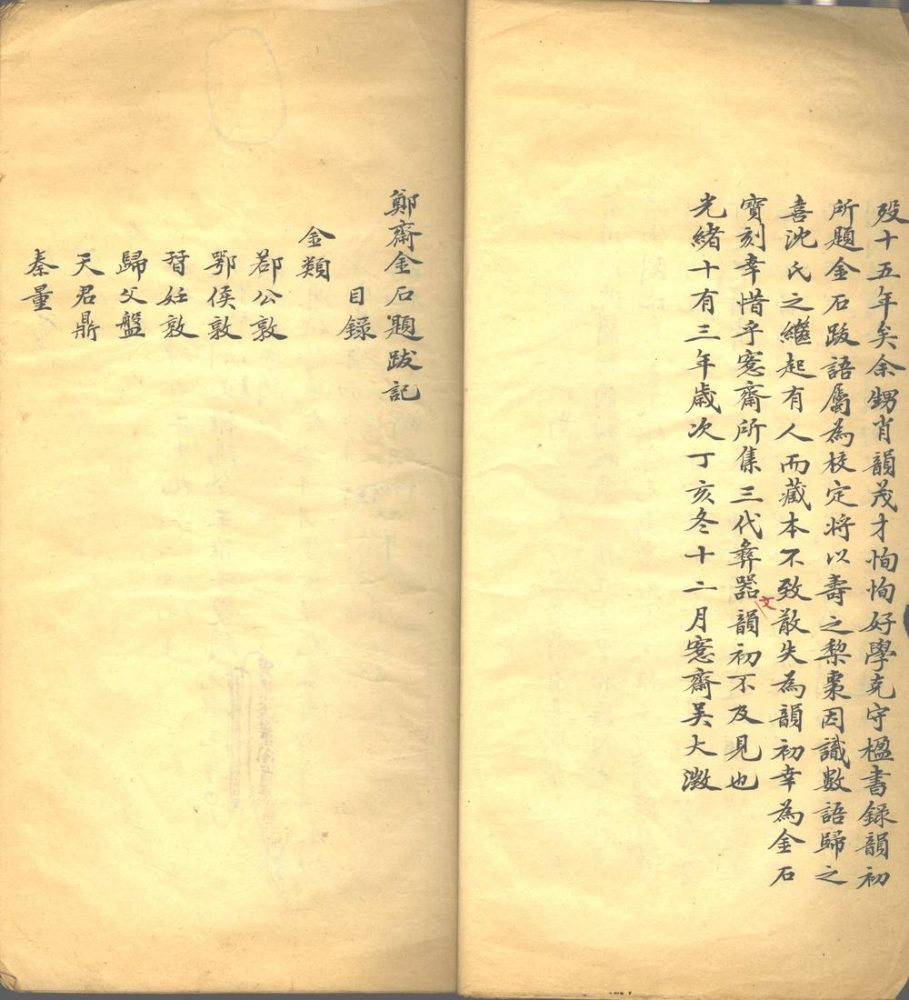 歿十五年矣余甥肖韻茂才恂恂好學克守楹書錄韻初
所題金石跋語屬為校定將以壽之棃棗因識數語歸之
喜沈氏之繼起有人而藏本不致散失為韻初幸為金石
寶刻幸惜乎愙齋所集三代彝器文韻初不及見也
光緒十有三年歲次丁亥冬十二月愙齋吳大澂
鄭齋金石題跋記
目錄
金類
鄀公敦
鄂侯敦
妊敦
歸父盤
天君鼎
秦量